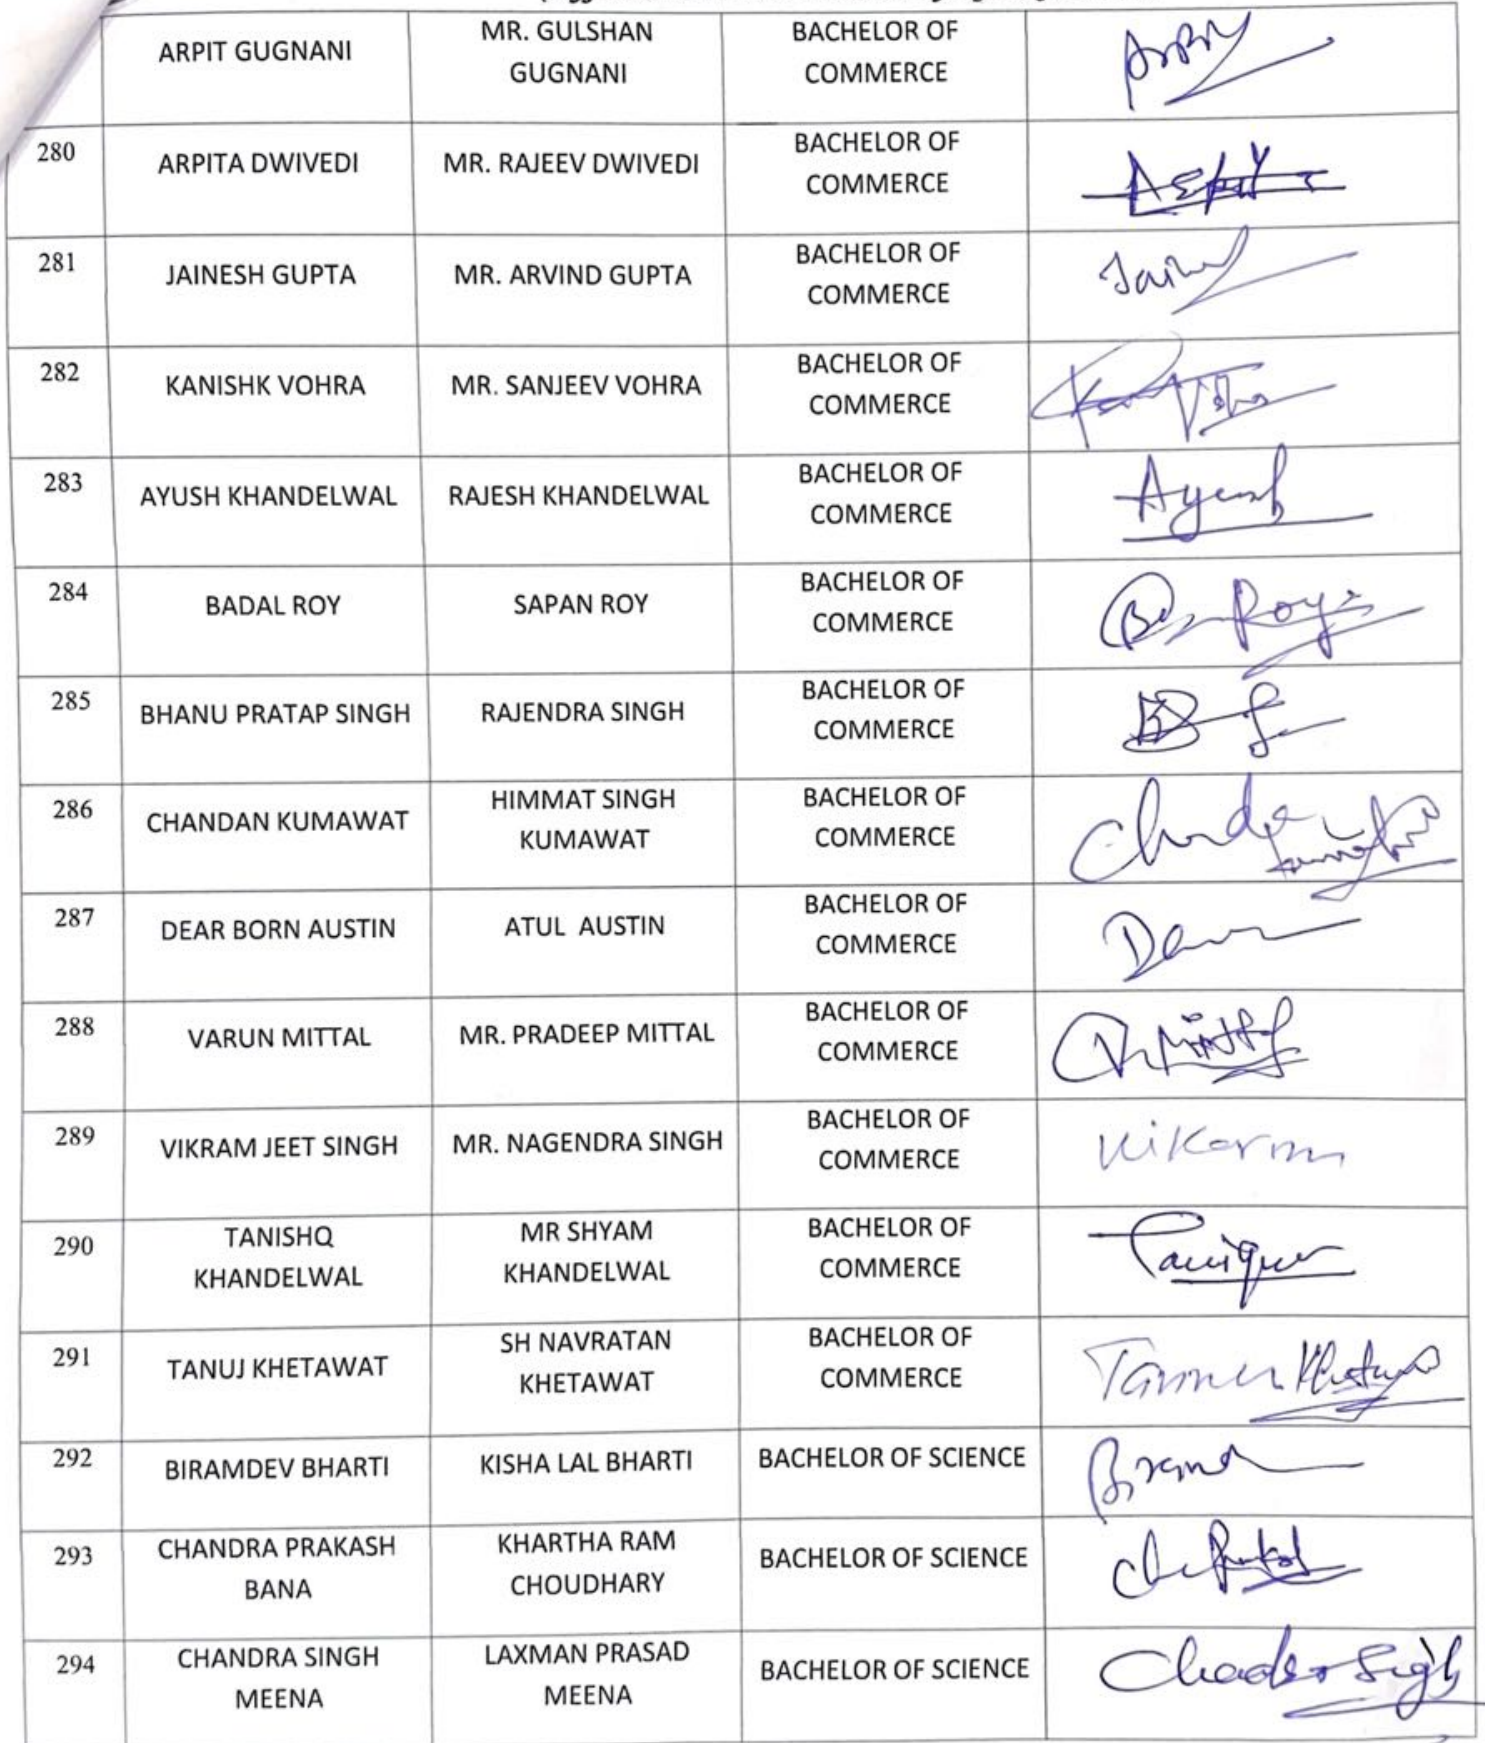 ARPIT GUGNANI
MR. GULSHAN
GUGNANI
BACHELOR OF
COMMERCE
280
ARPITA DWIVEDI
MR. RAJEEV DWIVEDI
BACHELOR OF
COMMERCE
281
JAINESH GUPTA
MR. ARVIND GUPTA
BACHELOR OF
COMMERCE
282
KANISHK VOHRA
MR. SANJEEV VOHRA
BACHELOR OF
COMMERCE
283
AYUSH KHANDELWAL
RAJESH KHANDELWAL
BACHELOR OF
COMMERCE
Ayush
284
BADAL ROY
SAPAN ROY
BACHELOR OF
COMMERCE
Roy
285
BHANU PRATAP SINGH
RAJENDRA SINGH
BACHELOR OF
COMMERCE
286
CHANDAN KUMAWAT
HIMMAT SINGH
KUMAWAT
BACHELOR OF
COMMERCE
287
DEAR BORN AUSTIN
ATUL AUSTIN
BACHELOR OF
COMMERCE
288
VARUN MITTAL
MR. PRADEEP MITTAL
BACHELOR OF
COMMERCE
289
VIKRAM JEET SINGH
MR. NAGENDRA SINGH
BACHELOR OF
COMMERCE
290
TANISHQ
KHANDELWAL
MR SHYAM
KHANDELWAL
BACHELOR OF
COMMERCE
291
TANUJ KHETAWAT
SH NAVRATAN
KHETAWAT
BACHELOR OF
COMMERCE
292
BIRAMDEV BHARTI
KISHA LAL BHARTI
BACHELOR OF SCIENCE
293
CHANDRA PRAKASH
BANA
KHARTHA RAM
CHOUDHARY
BACHELOR OF SCIENCE
294
CHANDRA SINGH
MEENA
LAXMAN PRASAD
MEENA
BACHELOR OF SCIENCE